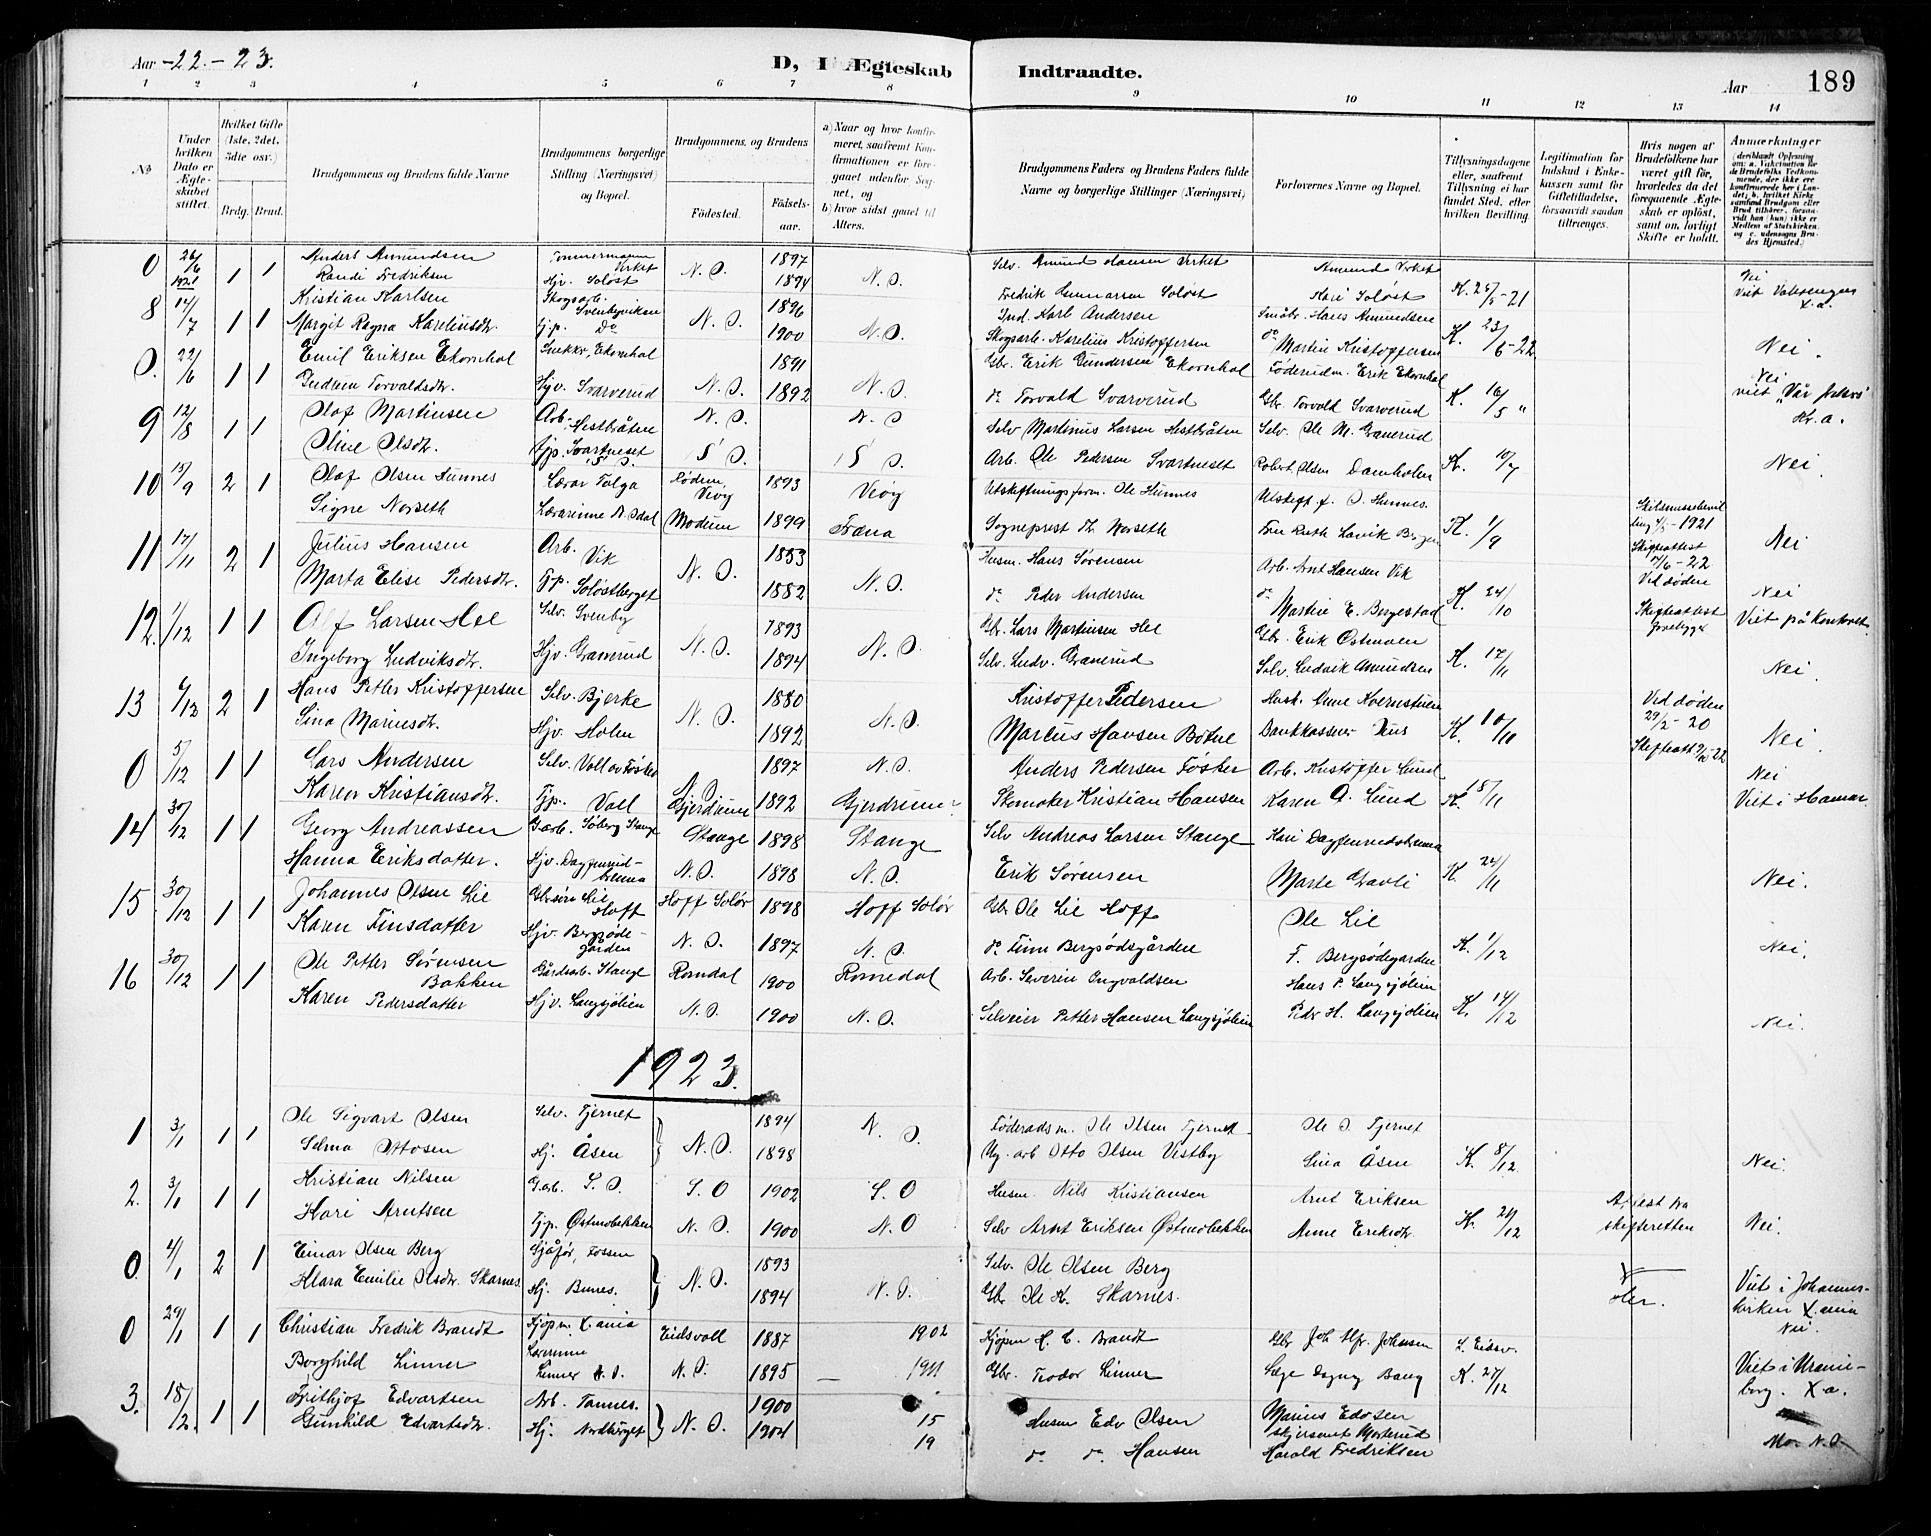 Aar -22.-23.
D, I Ægteskab Indtraadte.
Aar 189
1 2 3 4 5 6 7 8 9 10 11 12 13 14
No
Under hvilken Dato er Ægteskabet stiftet.
Hvilket Gifte (1ste, 2det, 3die osv.)
Brdg. Brud.
Brudgommens og Brudens fulde Navne
Brudgommens borgerlige Stilling (Næringsvei) og Bopæl.
Brudgommens og Brudens
Födested. Födselsaar.
a) Naar og hvor konfirmeret, saafremt Konfirmationen er foregaaet udenfor Sognet, og
b) hvor sidst gaaet til Alters.
Brudgommens Faders og Brudens Faders fulde Navne og borgerlige Stillinger (Næringsvei)
Forlovernes Navne og Bopæl.
Tillysningsdagene eller, saafremt Tillysning ei har fundet Sted, efter hvilken Bevilling.
Legitimation for Indskud i Enkekassen samt for Giftetilladelse, forsaavidt saadan tiltrænges.
Hvis nogen af Brudefolkene har været gift før, hvorledes da det foregaaende Ægteskab er opløst, samt om lovligt Skifte er holdt.
Anmærkninger
0 26/6 1921 1 1 Anders Amundsen Tømmermann Virket N. O. 1897 N. O. Selv. Amund Hansen Virket Amund Virket K. 25/5-21 Nei
Randi Fredriksen Hjv. Soløst 1894 Fredrik Gunnarsen Soløst Kari Soløst Viet Vaalerengen X.a.
8 14/7 1 1 Kristian Karlsen Skogsarb. Svenbyviken N. O. 1896 N. O. Ind. Karl Andersen Småbr. Hans Amundsen K. 23/6-22
Margit Ragna Kareliusdtr. Hjp. Do 1900 Skogsarb. Karelius Kristoffersen do Martin Kristoffersen Nei.
0. 22/6 1 1 Emil Eriksen Ekornhol Snekker, Ekornhol 1891 Gbr. Erik Gundersen Ekornhol Föderådm. Erik Ekornhol Nei
Gudrun Torvaldsdtr. Hjv. Svarverud N. O. 1892 N. O. do Torvald Svarverud Gbr. Torvald Svarverud K. 16/5 " viet "Vår frelsers" Kr.a.
9 12/8 1 1 Olaf Martinsen Arb. Hestbråten N. O. N. O Selv Martinus Larsen Hestbråten Selv. Ole M. Granerud
Oline Olsdtr. Hjp. Svartneset S. O. S O. S O. Arb. Ole Pedersen Svartneset Robert Olsen Damholen K. 10/7 Nei.
10 15/9 2 1 Olaf Olsen Hunnes Lærer Tolga Rødven, Veøy 1893 Veøy Utskiftningsform. Ole Hunnes Utskift.f. O. Hunnes.
Signe Norseth Lærerinne N. Odal Modum 1899 Fræna Sogneprest Th. Norseth Fru Ruth Lavik Bergen K. 1/9 Skilsmissebevilling 4/5-1921 Nei
11 17/11 2 1 Julius Hansen Arb. Vik N. O. 1853 N. O. Husm. Hans Sørensen Arb. Arnt Hansen Vik Skifteattest 7/6-22
Marta Elise Pedersdtr. Hjp. Soløstberget 1882 do Peder Andersen do Martin E. Bergestad K. 24/10 Ved døden Nei
12. 1/12 1 1 Alf Larsen Hel Selv. Svenby N. O. 1893 N. O. Gbr. Lars Martinsen Hel Gbr. Erik Østmoen Skifteattest forebygge Viet på kontoret.
Ingeborg Ludviksdtr. Hjv. Granerud 1894 Selv. Ludv. Granerud Selv. Ludvik Amundsen K. 17/11 Nei.
13 6/12 2 1 Hans Petter Kristoffersen Selv. Bjerke N. O. 1880 N. O. Kristoffer Pedersen Husk. Anne Kvernstuen Ved døden 29/2-20
Sina Mariusdtr. Hjv. Holm 1892 Marius Hansen Bøtue Bankkasserer Juus K. 10/11 Nei.
0 5/12 1 1 Lars Andersen Selv. Voll av Fösker N. O. 1897 N. O. Anders Pedersen Fösker Arb. Kristoffer Lund Nei
Karen Kristiansdtr. Hjp. Voll Gjerdrum 1892 Gjerdrum Skomaker Kristian Hansen Karen O. Lund K. 18/11 Viet i Hamar.
14 30/12 1 1 Georg Andreassen G.arb. Søberg Stange Stange 1898 Stange Selv Andreas Larsen Stange Kari Dagfinrudshemma
Hanna Eriksdatter. Hjv. Dagfinrudhemma N. O. 1898 N. O. Erik Sørensen Marte Gravli K. 24/11 Nei.
15 30/12 1 1 Johannes Olsen Lie Gbrsøn Lie Hoff Hoff Solør 1898 Hoff Solør Gbr Ole Lie Hoff Ole Lie
Karen Finsdatter Hjv. Bergsødegården N. O. 1897 N. O. do Finn Bergsødsgården F. Bergsødegarden K. 1/12 Nei.
16 30/12 1 1 Ole Petter Sørensen Bakken Gårdsarb. Stange Romdal 1900 Romedal Arb. Severin Ingvaldsen Hans P. Langsjölien
Karen Pedersdatter Hjv. Langsjölien N. O. 1900 N. O. Selveier Petter Hansen Langsjölien Peder H. Langsjölien K. 14/12 Nei.
1923.
1 3/1 1 1 Ole Sigvart Olsen Selv. Tjernet N. O. 1894 N. O. Föderadsm. Ole Olsen Tjernet Ole O. Tjernet
Selma Ottosen Hj. Åsen 1898 Ug. arb Otto Olsen Vestby Lina Åsen K. 8/12 Nei.
2. 3/1 1 1 Kristian Nilsen G.arb. S. O. S. O 1902 S. O Husm. Nils Kristiansen Arnt Eriksen Attest fra
Kari Arntsen Hjp. Østmobekken N. O. 1900 N. O Selv Arnt Eriksen Østmobekken Anne Eriksdtr. K. 20/12 skifteretten Nei.
0. 4/1 2 1 Einar Olsen Berg Sjåför, Fossen N. O. 1893 Selv. Ole Olsen Berg
Klara Emilie Olsdtr. Skarnes Hj. Bunes. 1894 N. O. Gbr Ole K. Skarnes. Viet i Johanneskirken X.ania
0 29/1 1 1 Christian Fredrik Brandt Kjøpm. X.ania Eidsvoll 1887 1902 Kjøpm H. C. Brandt Gbr Joh Alfr. Johansen L. Eidsv. Nei.
Borghild Linner Lærerinne Linner N. O. N. O. 1895 — 1911 Gbr. Teodor Linner Læge Dagny Bang K. 27/12 Viet i Uranieborg. X.a.
3. 18/2. 1 1 Frithjof Edvartsen Arb. Tannes. N. O. 1900 15 Husm Edv Olsen Marius Edvsen Skjersmt Morterud
Gunhild Edvartsdtr. Hj. Nordberget 1904 19 do do Hansen Harald Fredriksen Mo. N. O.